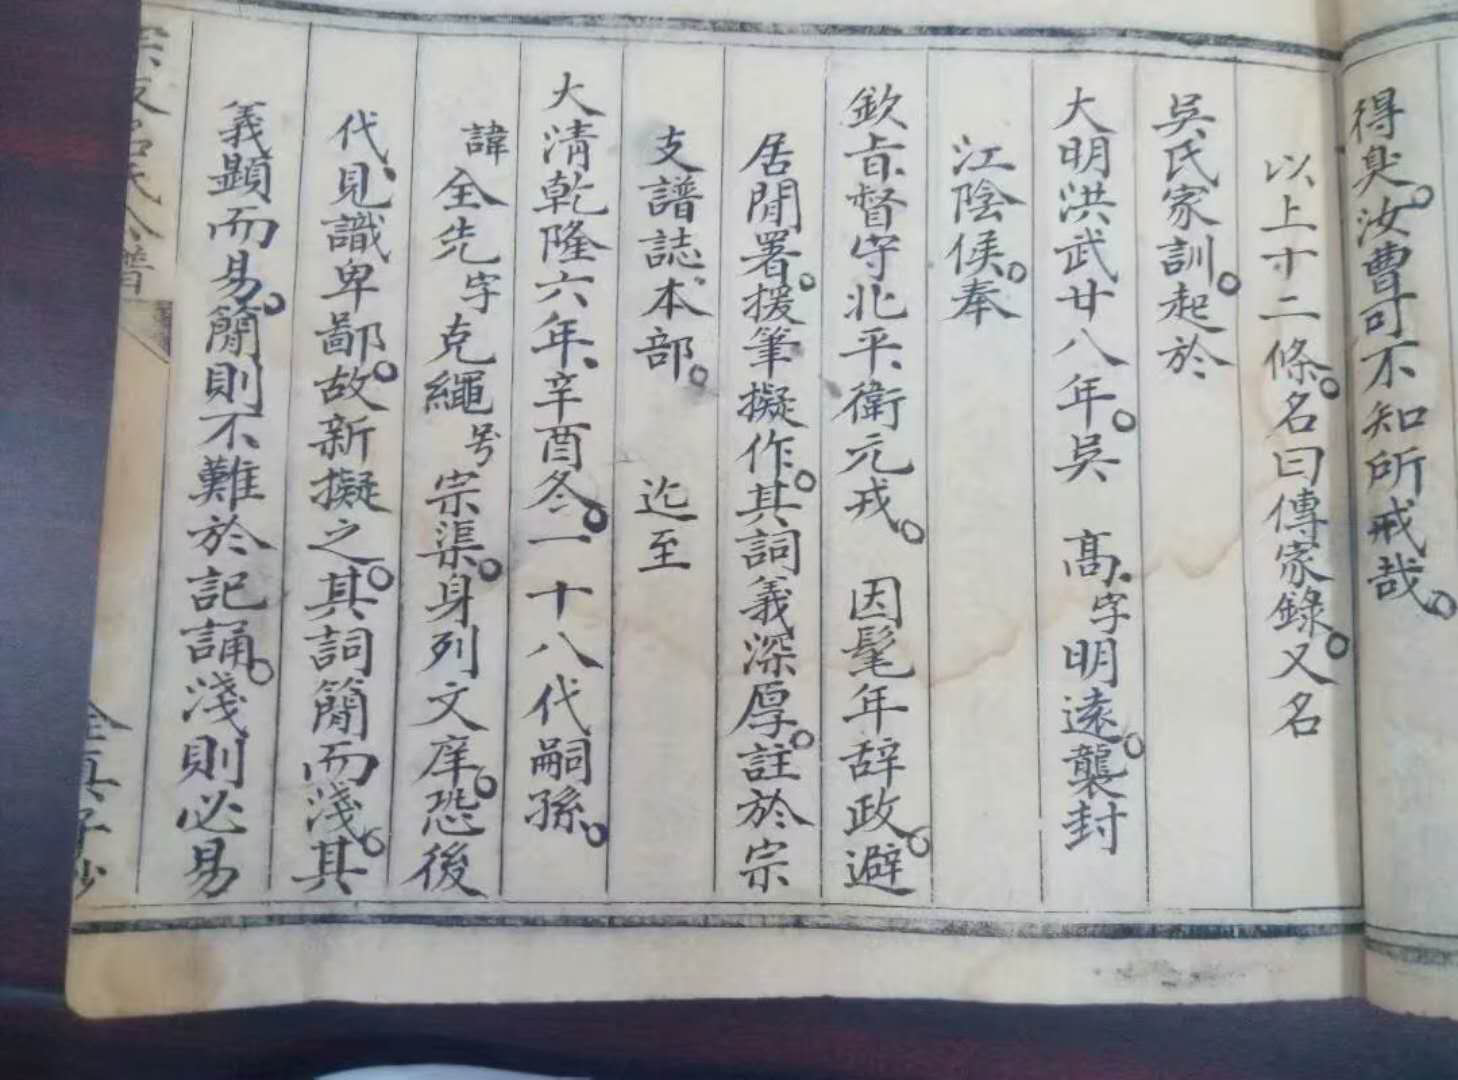 得臭。汝曹可不知所戒哉。
以上十二條。名曰傳家錄。又名
吳氏家訓。起於
大明洪武廿八年。吳 高、字明遠。襲封
江陰侯。奉
欽旨督守北平衛元戎。 因髦年辞政。避
居閒署。援筆擬作。其詞義深厚。註於宗
支譜誌本部。 迄至
大清乾隆六年、辛酉冬。一十八代嗣孫。
諱全先字克繩号宗渠。身列文庠。恐後
代、見識卑鄙。故新擬之。其詞簡而淺。其
義顯而易。簡則不難於記誦。淺則必易